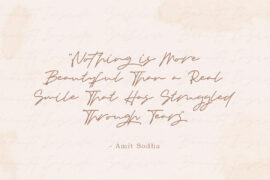 "Nothing is More
Beautiful Than a Real
Smile That Has Struggled
Through Tears
- Amit Sodha